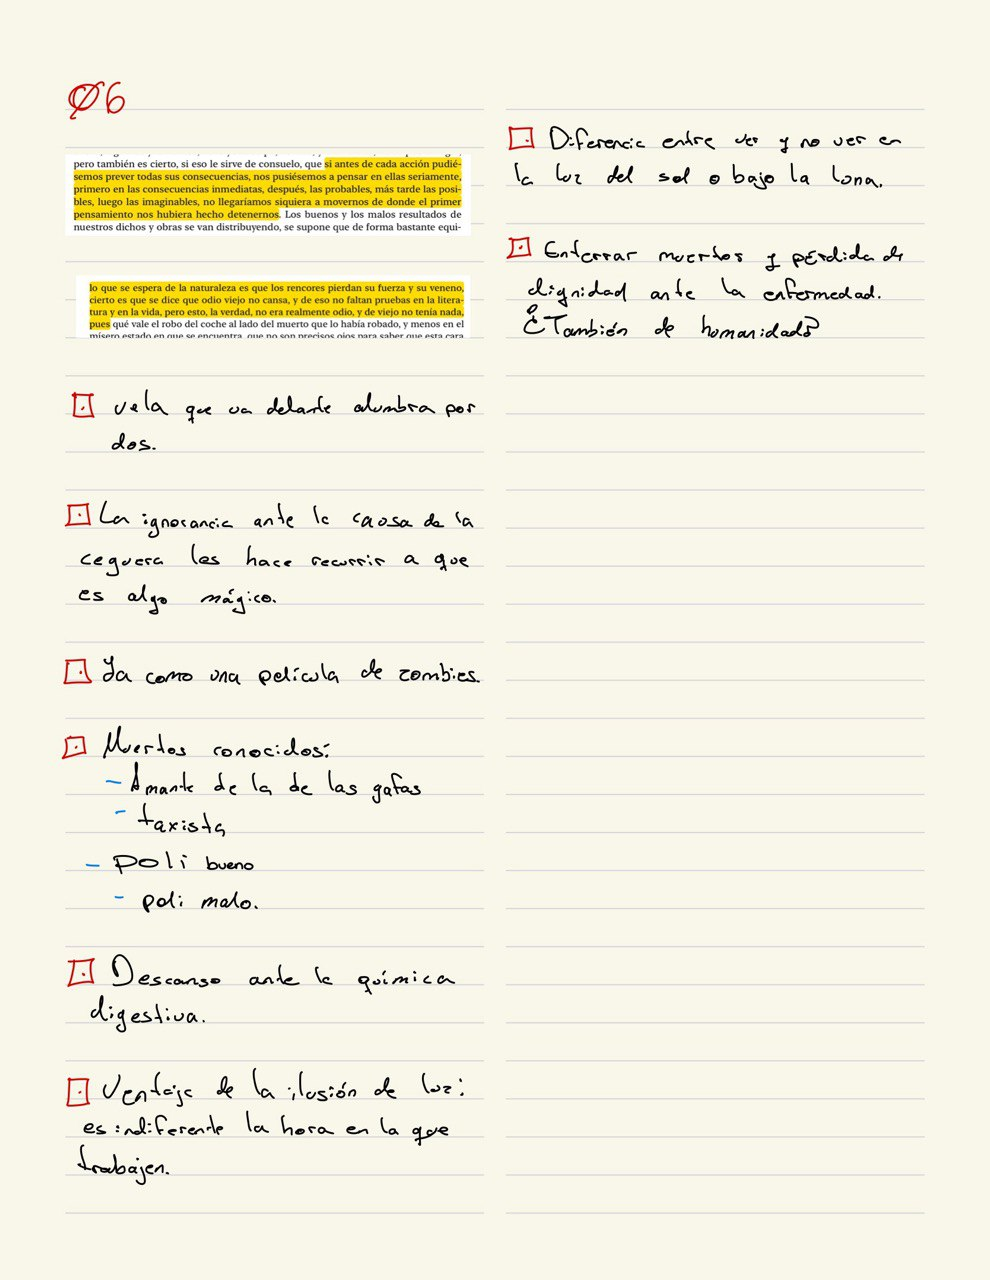 Ø6
pero también es cierto, si eso le sirve de consuelo, que si antes de cada acción pudié-
semos prever todas sus consecuencias, nos pusiésemos a pensar en ellas seriamente,
primero en las consecuencias inmediatas, después, las probables, más tarde las posi-
bles, luego las imaginables, no llegaríamos siquiera a movernos de donde el primer
pensamiento nos hubiera hecho detenernos. Los buenos y los malos resultados de
nuestros dichos y obras se van distribuyendo, se supone que de forma bastante equi-
lo que se espera de la naturaleza es que los rencores pierdan su fuerza y su veneno,
cierto es que se dice que odio viejo no cansa, y de eso no faltan pruebas en la litera-
tura y en la vida, pero esto, la verdad, no era realmente odio, y de viejo no tenía nada,
pues qué vale el robo del coche al lado del muerto que lo había robado, y menos en el
mísero estado en que se encuentra, que no son precisos ojos para saber que esta cara
vela que va delante alumbra por
dos.
La ignorancia ante la causa de la
ceguera les hace recurrir a que
es algo mágico.
Ya como una película de zombies.
Muertos conocidos:
- Amante de la de las gafas
- taxista
- poli bueno
- poli malo.
Descanso ante la química
digestiva.
Ventaja de la ilusión de luz:
es indiferente la hora en la que
trabajen.
Diferencia entre ver y no ver en
la luz del sol o bajo la lona.
Enterrar muertos y pérdida de
dignidad ante la enfermedad.
¿También de humanidad?